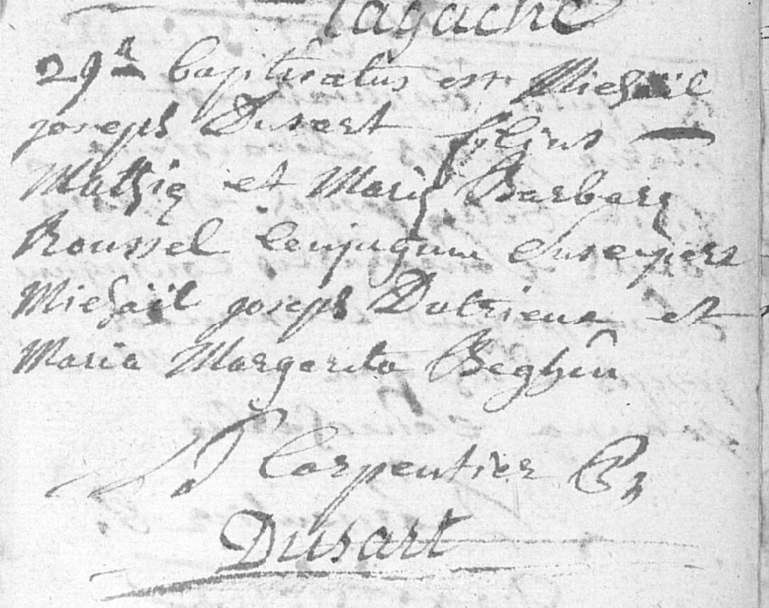 Lagache
29ª baptisatus est Michaël
joseph Dusart filius
Mathiæ et Mariæ Barbaræ
Roussel conjugum susceperе
Michaël joseph Dutrieux et
Maria Margarita Beghin
Carpentier
Dusart